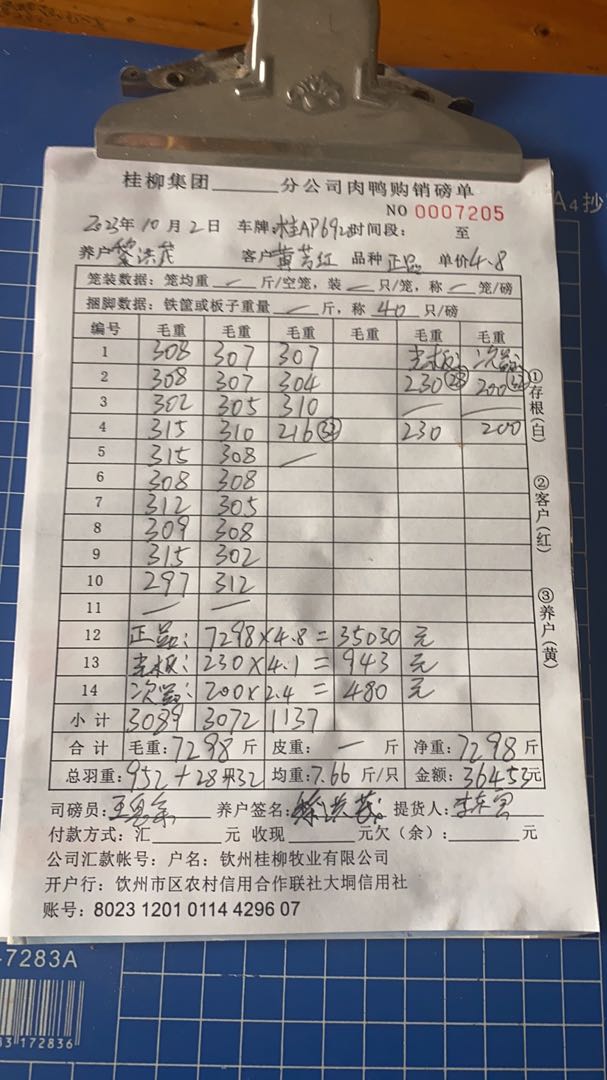 桂柳集团______分公司肉鸭购销磅单
NO 0007205
A4抄
2023年10月2日 车牌:桂AP692 时间段: 至
养户 黎洪茂 客户 黄芳红 品种 正品 单价 4.8
笼装数据：笼均重 — 斤/空笼，装 — 只/笼，称 — 笼/磅
捆脚数据：铁筐或板子重量 — 斤，称 40 只/磅
编号 毛重 毛重 毛重 毛重 毛重 毛重
1 308 307 307 光板: 次品:
2 308 307 304 230(28) 200(32)
3 302 305 310 — —
4 315 310 216(32) 230 200
5 315 308 —
6 308 308
7 312 305
8 309 308
9 315 302
10 297 312
11 — —
12 正品: 7298×4.8=35030 元
13 光板: 230×4.1=943 元
14 次品: 200×2.4=480 元
小计 3089 3072 1137
合计 毛重: 7298 斤 皮重: — 斤 净重: 7298 斤
总羽重: 952+28+32 均重: 7.66 斤/只 金额: 36453元
司磅员: 养户签名: 提货人:
付款方式: 汇______元 收现______元欠（余）:______元
公司汇款帐号: 户名: 钦州桂柳牧业有限公司
开户行: 钦州市区农村信用合作联社大垌信用社
账号: 8023 1201 0114 4296 07
①存根(白)
②客户(红)
③养户(黄)
-7283A
172836